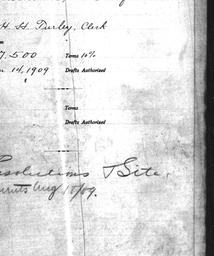 H. H. Turley, Clerk
7,500 Terms 10%
14, 1909 Drafts Authorized
Terms
Drafts Authorized
Site.
Aug 10/09.